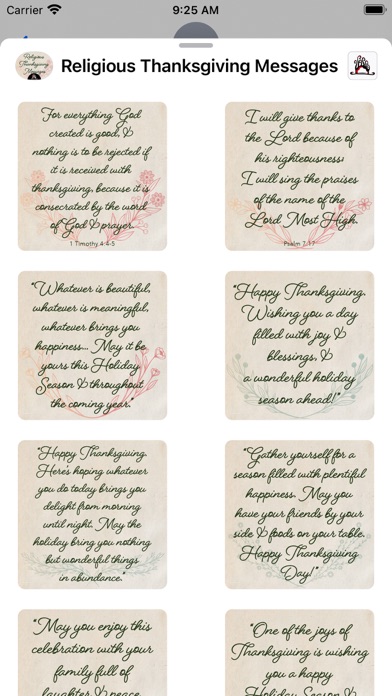 Carrier 9:25 AM
Religious
Thanksgiving
Messages
Religious Thanksgiving Messages
For everything God
created is good, &
nothing is to be rejected if
it is received with
thanksgiving, because it is
consecrated by the word
of God & prayer.
1 Timothy 4:4-5
I will give thanks to
the Lord because of
his righteousness;
I will sing the praises
of the name of the
Lord Most High.
Psalm 7:17
"Whatever is beautiful,
whatever is meaningful,
whatever brings you
happiness... May it be
yours this Holiday
Season & throughout
the coming year."
"Happy Thanksgiving.
Wishing you a day
filled with joy &
blessings, &
a wonderful holiday
season ahead!"
"Happy Thanksgiving.
Here's hoping whatever
you do today brings you
delight from morning
until night. May the
holiday bring you nothing
but wonderful things
in abundance."
"Gather yourself for a
season filled with plentiful
happiness. May you
have your friends by your
side & foods on your table.
Happy Thanksgiving
Day!"
"May you enjoy this
celebration with your
family full of
laughter & peace
"One of the joys of
Thanksgiving is wishing
you a happy
Holiday Season &